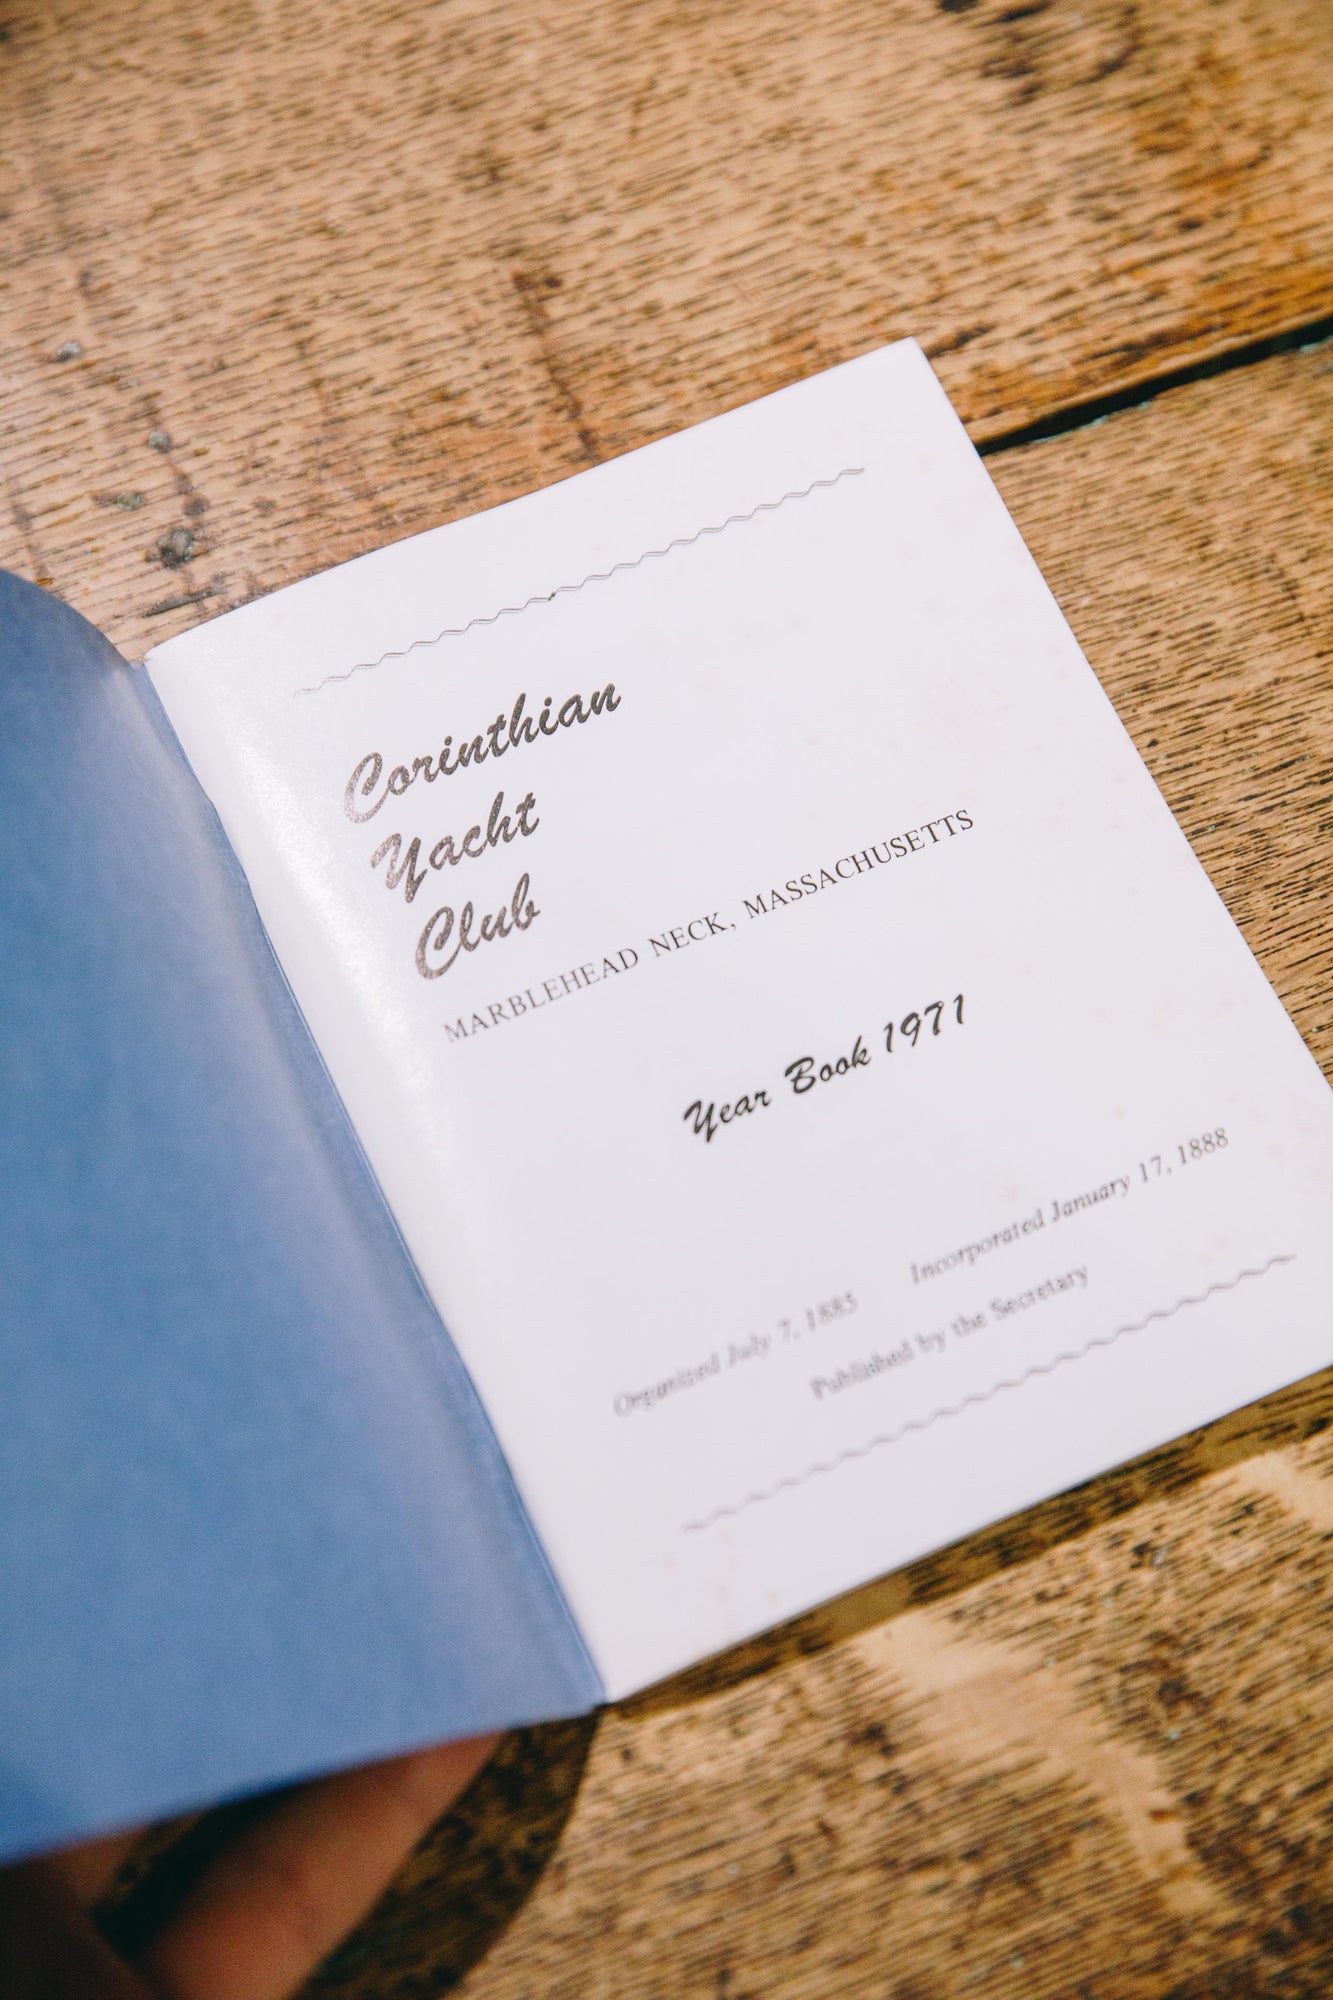 Corinthian
Yacht
Club
MARBLEHEAD NECK, MASSACHUSETTS
Year Book 1971
Organized July 7, 1885 Incorporated January 17, 1888
Published by the Secretary